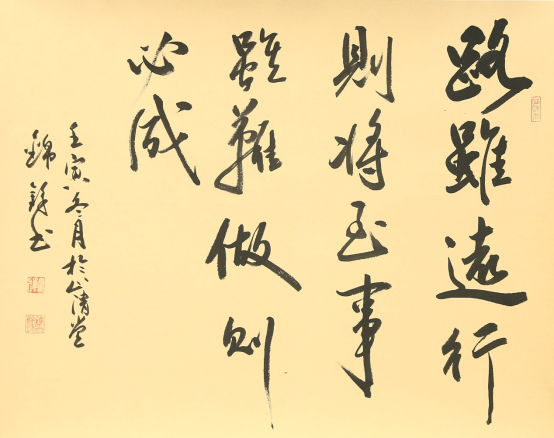 路雖遠行
則将至事
雖難做則
必成
壬寅冬月於清堂
錦书